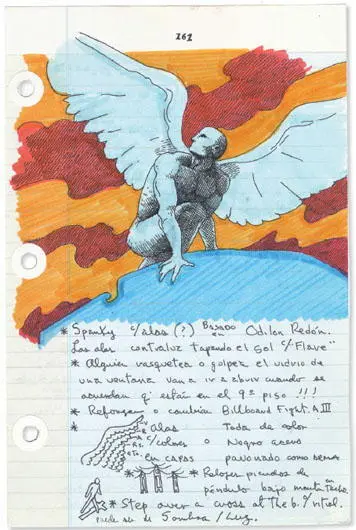 161
* Spanky c/alas (?) Basado en Odilon Redón.
Las alas contraluz tapando el sol c/"Flare"
* Alguien rasguetea o golpea el vidrio de
una ventana van a ir a abrir cuando se
acuerdan q' están en el 9º piso !!!
* Reforzar o cambiar Billboard Fight. A III
* alas Toda de color
c/colores o Negro acero
en CAPAS pavonado como
* Relojes picudos de
péndulo bajo
* Step over a cross at the
Sombra / luz.